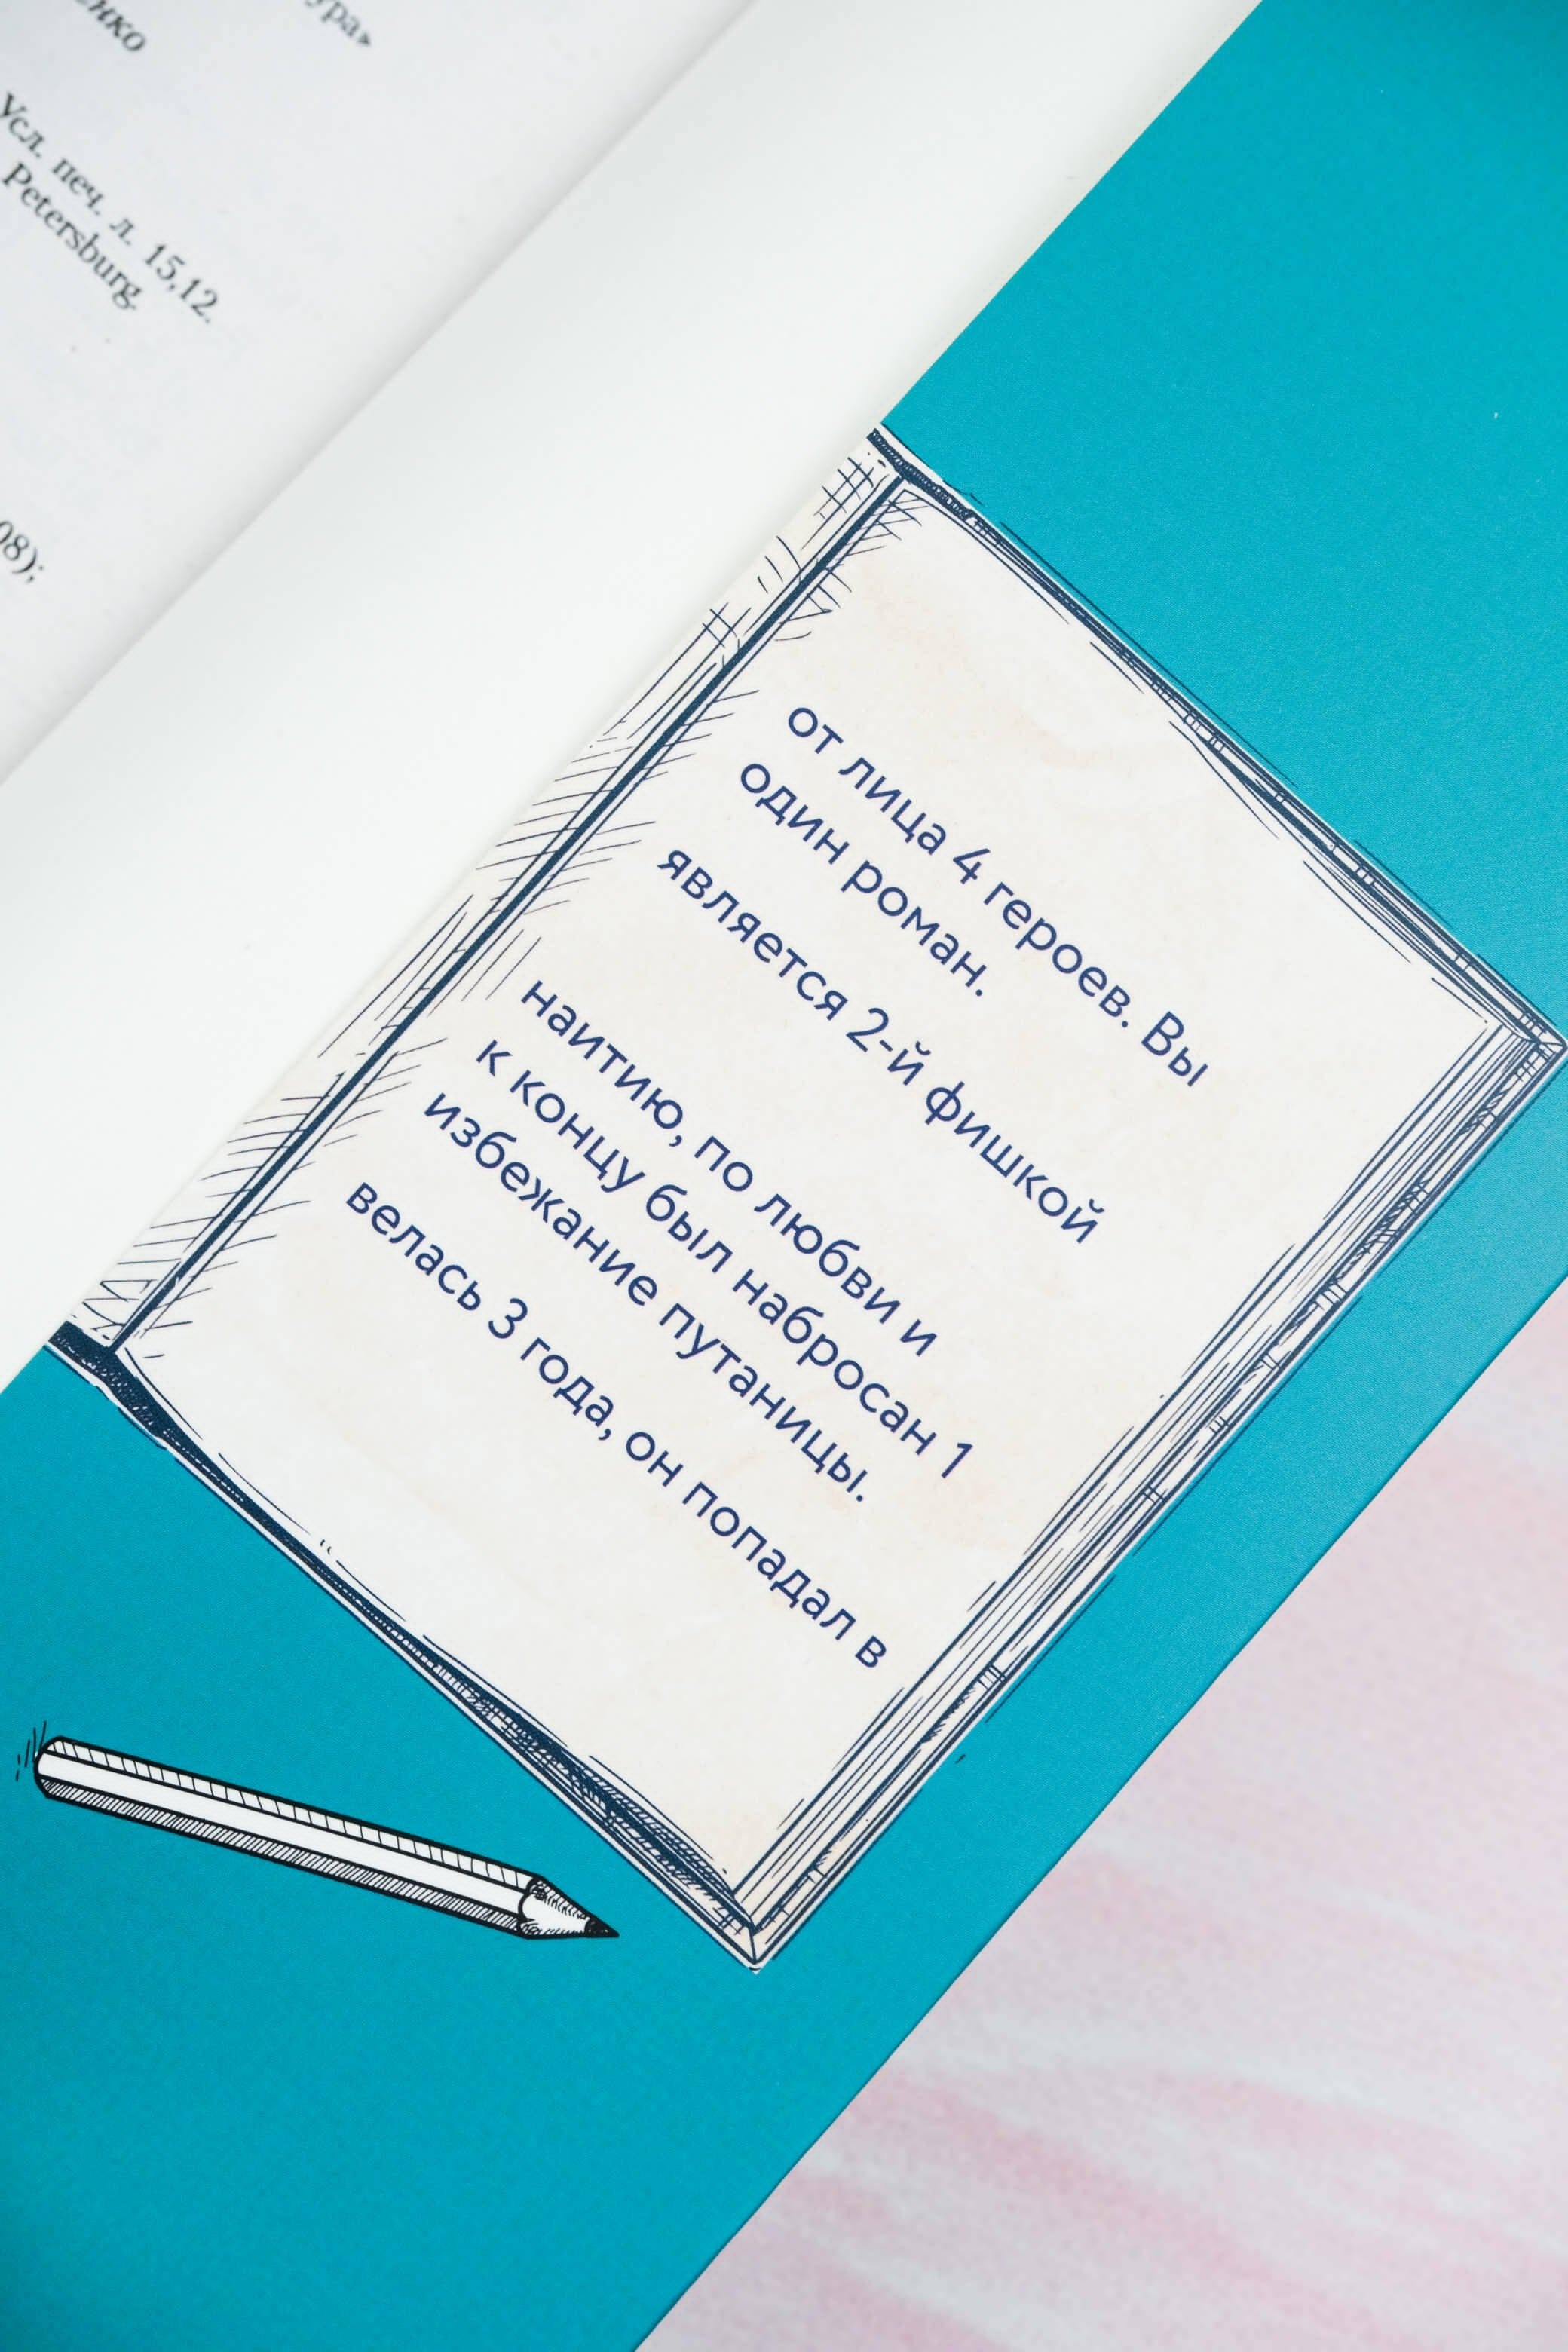 ура»
енко
Усл. печ. л. 15,12.
Petersburg.
08);
от лица 4 героев. Вы
один роман.
является 2-й фишкой
наитию, по любви и
к концу был набросан 1
избежание путаницы.
велась 3 года, он попадал в